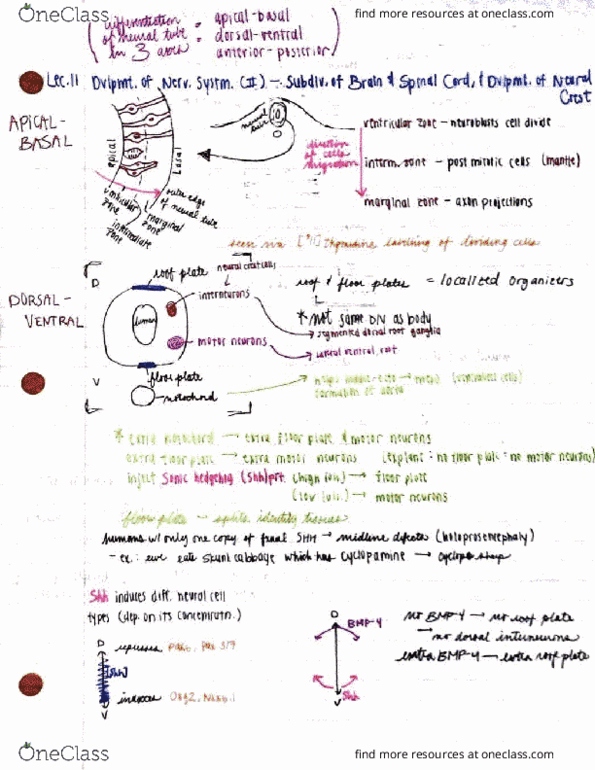 OneClass
find more resources at oneclass.com
differentiation of neural tube in 3 axes = apical-basal
= dorsal-ventral
anterior-posterior
Lec. 11 Dvlpmt. of Nerv. Systm. (II) - Subdiv. of Brain & Spinal Cord, & Dvlpmt. of Neural Crest
APICAL-BASAL
apical
basal
neural tube
direction of cells migration
ventricular zone - neuroblasts cell divide
interm. zone - post mitotic cells (mantle)
marginal zone - axon projections
outer edge of neural tube
ventricular zone
marginal zone
intermediate zone
seen via [³H] thymidine labelling of dividing cells
DORSAL-VENTRAL
D
roof plate
neural crest cells
interneurons
lumen
motor neurons
floor plate
V
notochord
roof & floor plates = localized organizers
*not same D/V as body
segmented dorsal root ganglia
ventral root
formation of aorta
* extra notochord → extra floor plate & motor neurons
extra floor plate → extra motor neurons (explant: no floor plate: no motor neurons)
inject Sonic hedgehog (Shh) prt. (high conc.) → floor plate
(low conc.) → motor neurons
floor plate - splits identity tissues
humans w/ only one copy of SHH → midline defects (holoprosencephaly)
- ex.: ewe eats skunk cabbage which has cyclopamine → cyclops sheep
Shh induces diff. neural cell
types (dep. on its concentratn.)
D
represses Pax6, Pax 3/7
[Shh]
induces Olig2, Nkx6.1
V
D
BMP-4
Shh
V
no BMP-4 → no roof plate
→ no dorsal interneurons
extra BMP-4 → extra roof plate
OneClass
find more resources at oneclass.com